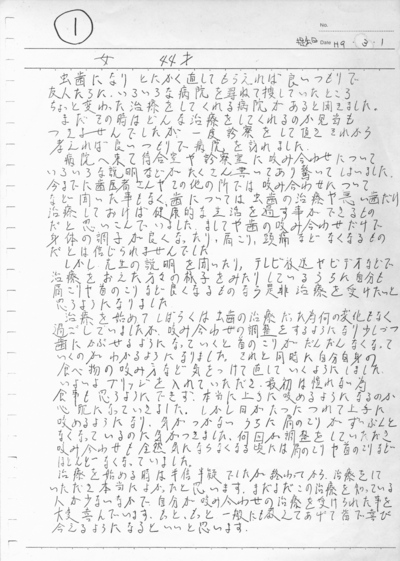 ①
No.
提出日 Date H9・3・1
女 44才
虫歯になり とにかく直してもらえれば良いつもりで
友人たちにいろいろな病院を尋ねて捜していたところ
ちょっと変わった治療をしてくれる病院があると聞きました。
まだその時はどんな治療をしてくれるのか見当も
つきませんでしたが 一度診察をして頂きそれから
考えれば良いつもりで病院を訪れました。
病院へ来て待合室や診察室に咬み合わせについて
いろいろな説明などがたくさん書いてあり驚いてしまいました。
今までに歯医者さんやその他の所では咬み合わせについて
など聞いた事もなく 歯については虫歯の治療や悪い歯だけ
治療しておけば健康的な生活を過す事ができるもの
だと思いこんでいました。ましてや歯の咬み合わせだけで
身体の調子が良くなったり、肩こり、頭痛などなくなるもの
だとは信じられませんでした。
しかし先生の説明を聞いたり、テレビ放送やビデオなどで
治療をおえた方々の様子をみたりしているうちに自分も
肩こりや首のこりなど良くなるものなら是非治療を受けたいと
思うようになりました
治療を始めてしばらくは虫歯の治療だった為何の変化もなく
過ごしていましたが、咬み合わせの調整をするようになり少しづつ
歯にかぶせるようになっていくと首のこりがだんだんなくなって
いくのがわかるようになりました。それと同時に自分自身の
食べ物の咬み方など気をつけて直していくようにしました。
いよいよブリッジを入れていただき、最初は慣れない為
食事も思うようにできず、本当に上手に咬めるようになるのか
心配になっていきました。しかし日がたつにつれて上手に
咬めるようになり、気がつかないうちに肩のこりがずいぶんと
なくなっているのに気がつきました。何回か調整をしていただき
咬み合わせも全然気にならなくなる頃には肩のこりや首のこりなど
ほとんどなくなっていました。
治療を始める時は半信半疑でしたが終わってから、治療をして
いただき本当によかったと思います。まだまだこの治療を知っている
人が少ないなかで自分が咬み合わせの治療を受けられた事を
大変喜んでいます。もっともっと一般にも教えてあげて皆で喜び
合えるようになるといいと思います。